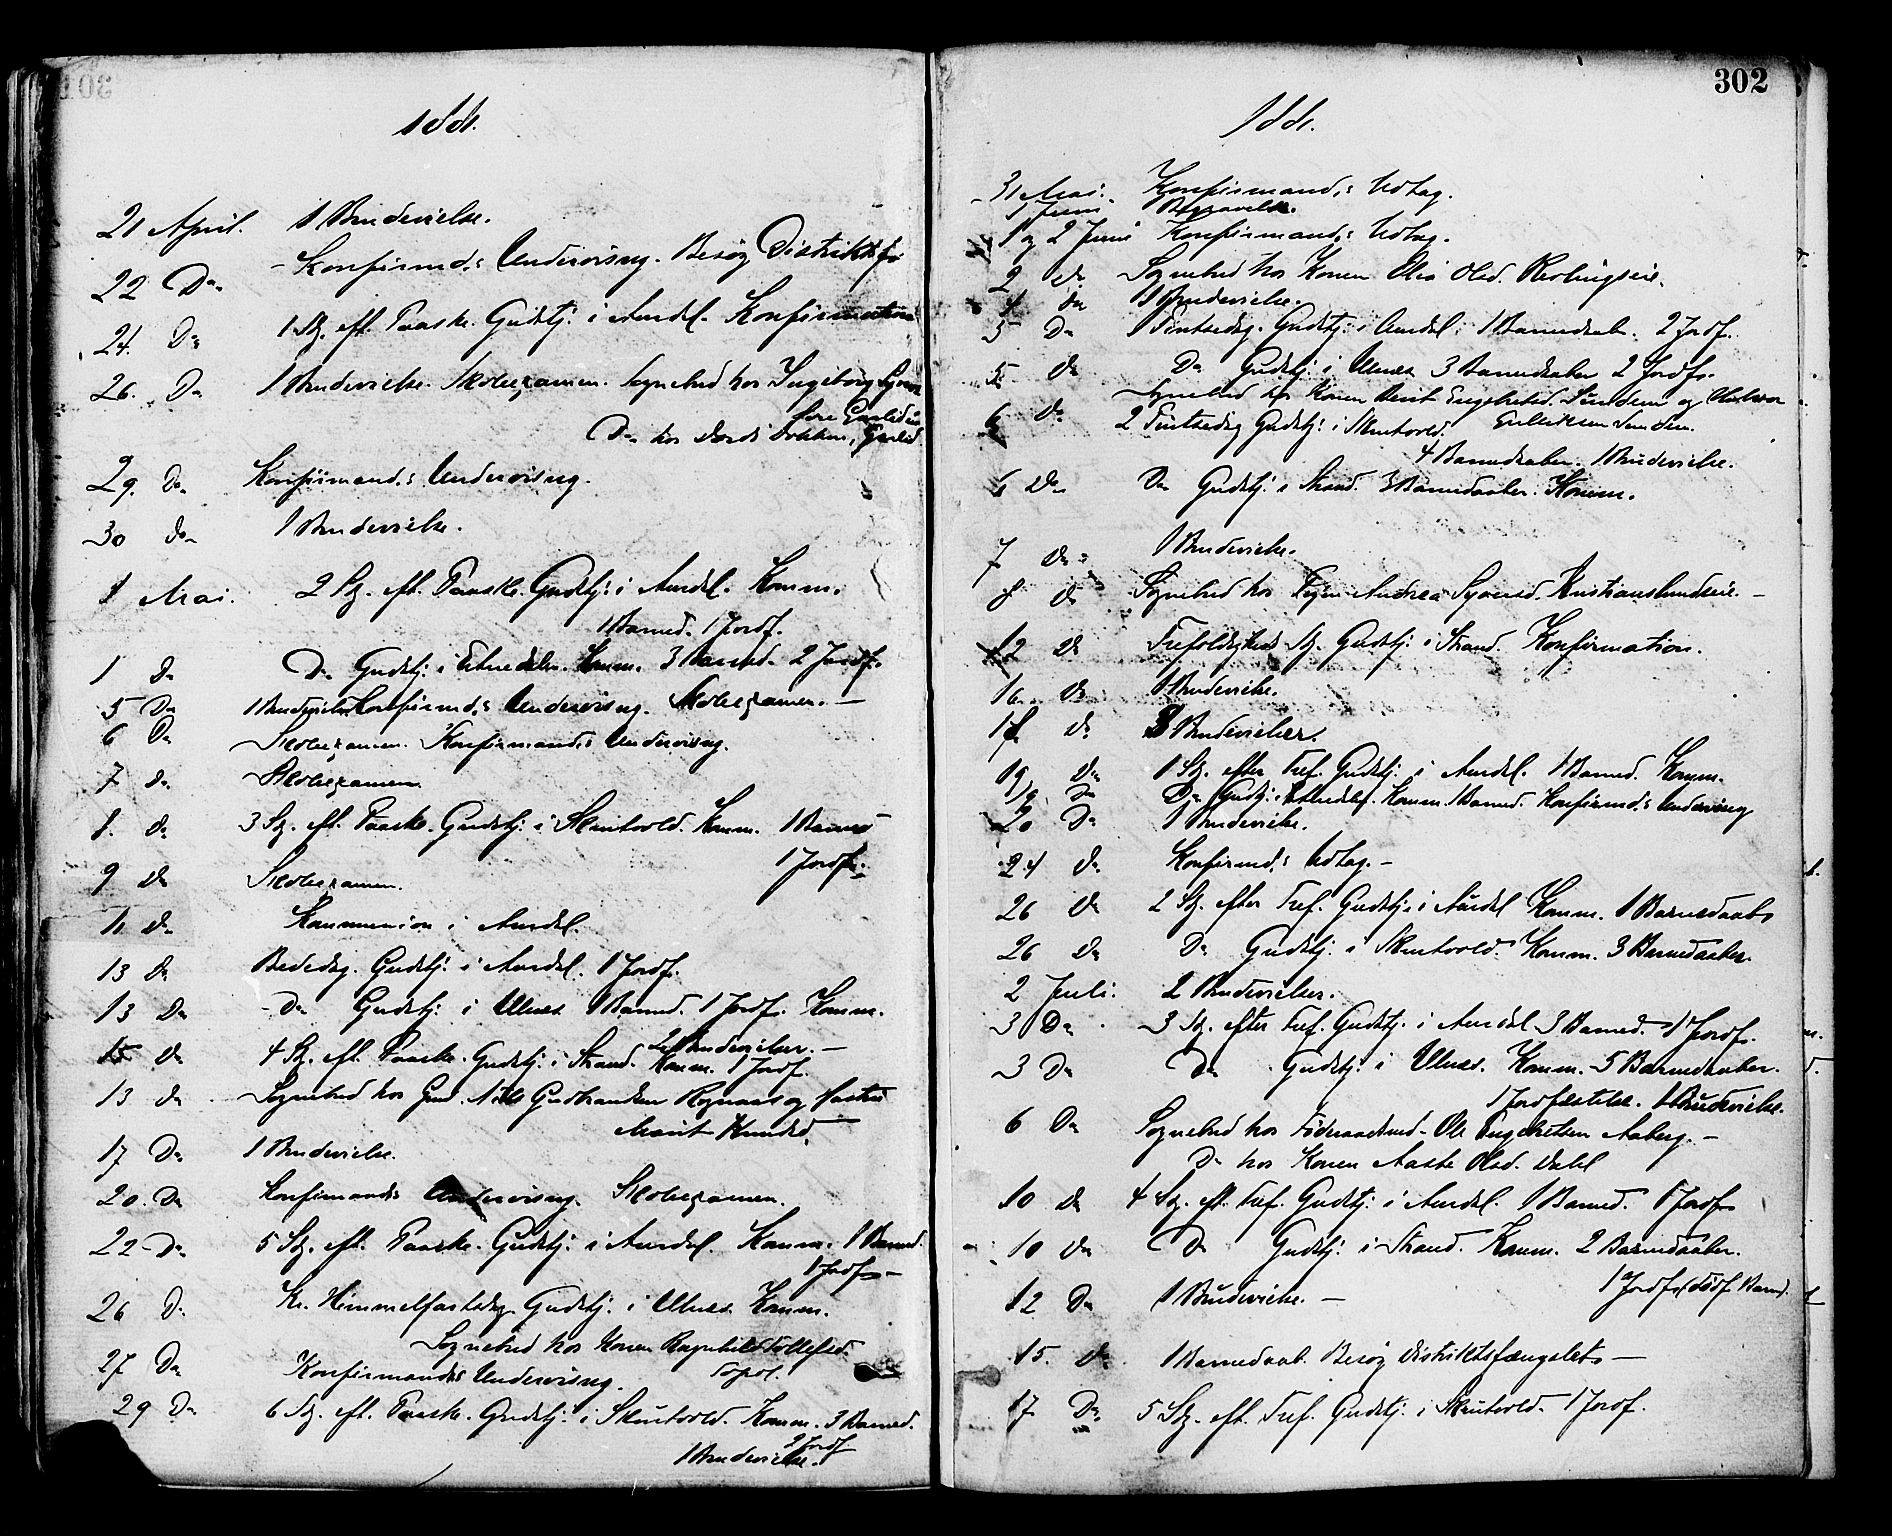 1881.
21 April. 1 Brudevielse.
22 Do Konfirmds Undervisng. Besøg Distriktsf.
24. Do 1 Sg. eft. Paaske. Gudstj. i Aurdal. Konfirmation
26. Do 1 Brudevielse. Skoleexamen. Sognebud hos Ingeborg
Do hos
29. Do Konfirmands Undervisng.
30 Do 1 Brudevielse.
1 Mai. 2 Sg. eft. Paaske. Gudstj. i Aurdal. Komm.
1 Barned. 1 Jordf.
1 Do Do Gudstj. i Etnedalen. Komm. 3 Barned. 2 Jordf.
5 Do 1 Brudevielse Konfirmds Undervisng. Skoleexamen. —
6 Do Skoleexamen. Konfirmands Undervisng.
7 Do Skoleexamen
8. Do 3 Sg. eft. Paaske. Gudstj. i Skrutvold. Komm. 1 Barned
1 Jordf.
9 Do Skoleexamen.
11 Do Kommunion i Aurdal.
13 Do Bededag. Gudstj. i Aurdal. 1 Jordf.
13 Do Do Gudstj. i Ulnæs 1 Barned. 1 Jordf. Komm.
2 Brudevielser. —
15 Do 4 Sg. eft. Paaske. Gudstj. i Strand. Komm. 1 Jordf.
13 Do Sognebud hos Gmd. Nils Gudbrandsen Rognaas og
Marit Knudsd.
17 Do 1 Brudevielse.
20. Do Konfirmands Undervisng. Skoleexamen.
22 Do 5 Sg. eft. Paaske. Gudstj. i Aurdal. Komm. 1 Barned.
1 Jordf. —
26 Do Kr. Himmelfartsdag Gudstj. i Ulnæs. Komm.
Sognebud hos Konen Ragnhild Tollefsd.
27 Do Konfirmands Undervisng.
29 Do 6 Sg. eft. Paaske. Gudstj. i Skrutvold. Komm. 3 Barned.
2 Jordf
1 Brudevielse.
302
1881.
31 Mai. Konfirmands Udtag.
1 Juni 1 Begravelse.
1 og 2 Juni Konfirmands Udtag.
2 Do Sognebud hos Konen Olia Olsd.
4 Do 1 Brudevielse.
5 Do 1 Pintsedag. Gudstj. i Aurdal. 1 Barnedaab. 2 Jordf.
5 Do Do Gudstj. i Ulnæs 3 Barnedaaber 2 Jordf.
Sognebud hos Konen Berit Engebretsd. Sundem og Halvor
6 Do 2 Pintsedag Gudstj. i Skrutvold. Eriksen Sundem.
4 Barnedaaber. 1 Brudevielse.
6 Do Do Gudstj. i Strand. 3 Barnedaaber. Komm.
7 Do 1 Brudevielse.
8 Do Sognebud hos Pigen Andrea Syversd. Kristianslundseie. —
12 Do Trefoldigheds Sg. Gudstj. i Strand. Konfirmation.
16 Do 1 Brudevielse.
18 Do 3 Brudevielser.
19 Do 1 Sg. efter Tref. Gudstj. i Aurdal. 1 Barned. Komm.
19 Do Do Gudstj. i Etnedalen. Komm. 1 Barned. Konfirmds Undervisng
20 Do 1 Brudevielse.
24 Do Konfirmds Udtag. —
26 Do 2 Sg. efter Tref. Gudstj. i Aurdal Komm. 1 Barnedaab
26 Do Do Gudstj. i Skrutvold. Komm. 3 Barnedaaber.
2 Juli. 2 Brudevielser.
3 Do 3 Sg. efter Tref. Gudstj. i Aurdal 3 Barned. 1 Jordf.
3 Do Do Gudstj. i Ulnæs. Komm. 5 Barnedaaber.
1 Jordfæstelse. 1 Brudevielse.
6 Do Sognebud hos Føderaadsmd. Ole Engebretsen Aaberg. —
Do hos Konen Aaste Olsd. Dahl
10 Do 4 Sg. eft. Tref. Gudstj. i Aurdal. 1 Barned. 1 Jordf.
10 Do Do Gudstj. i Strand. Komm. 2 Barnedaaber.
1 Jordf. (dødf. Barn).
12 Do 1 Brudevielse. —
15. Do 1 Barnedaab. Besøg Distriktsfængslet. —
17 Do 5 Sg. eft. Tref. Gudstj. i Skrutvold. 1 Jordf.